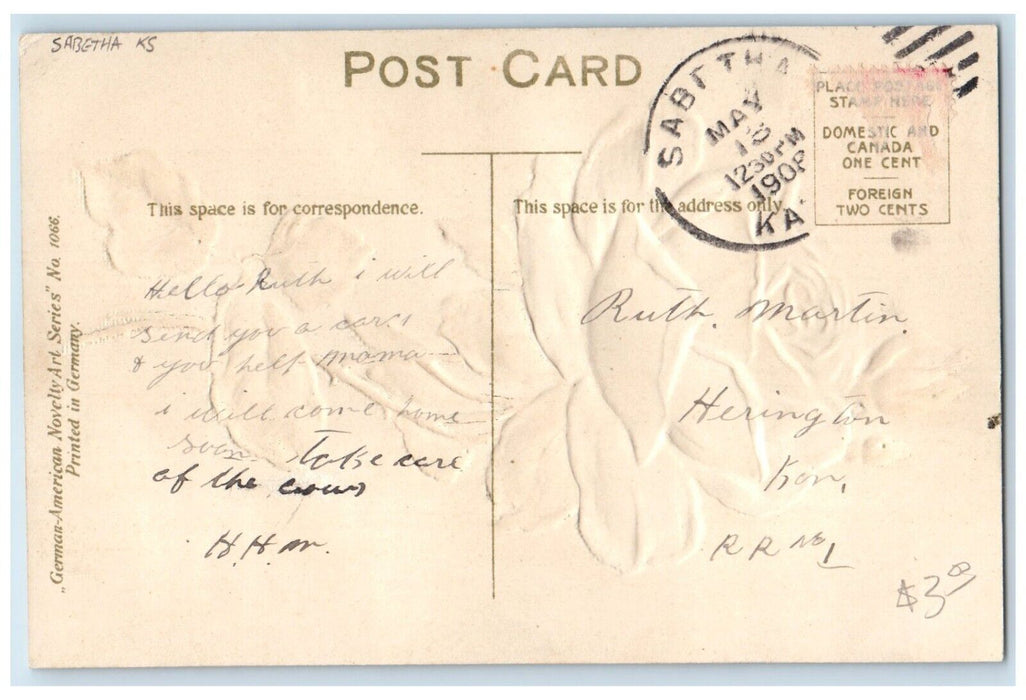 SABETHA KS
POST CARD
SABETHA
MAY
1230 PM
1908
KA
PLACE POSTAGE
STAMP HERE
DOMESTIC AND
CANADA
ONE CENT
FOREIGN
TWO CENTS
This space is for correspondence.
This space is for the address only.
„German-American Novelty Art Series" No. 1066.
Printed in Germany.
Hello Ruth i will
send you a card
& you help mama
i will come home
soon Take care
of the cows
H.H.M.
Ruth. Martin.
Herington
Kan,
R R No 1
$3.00